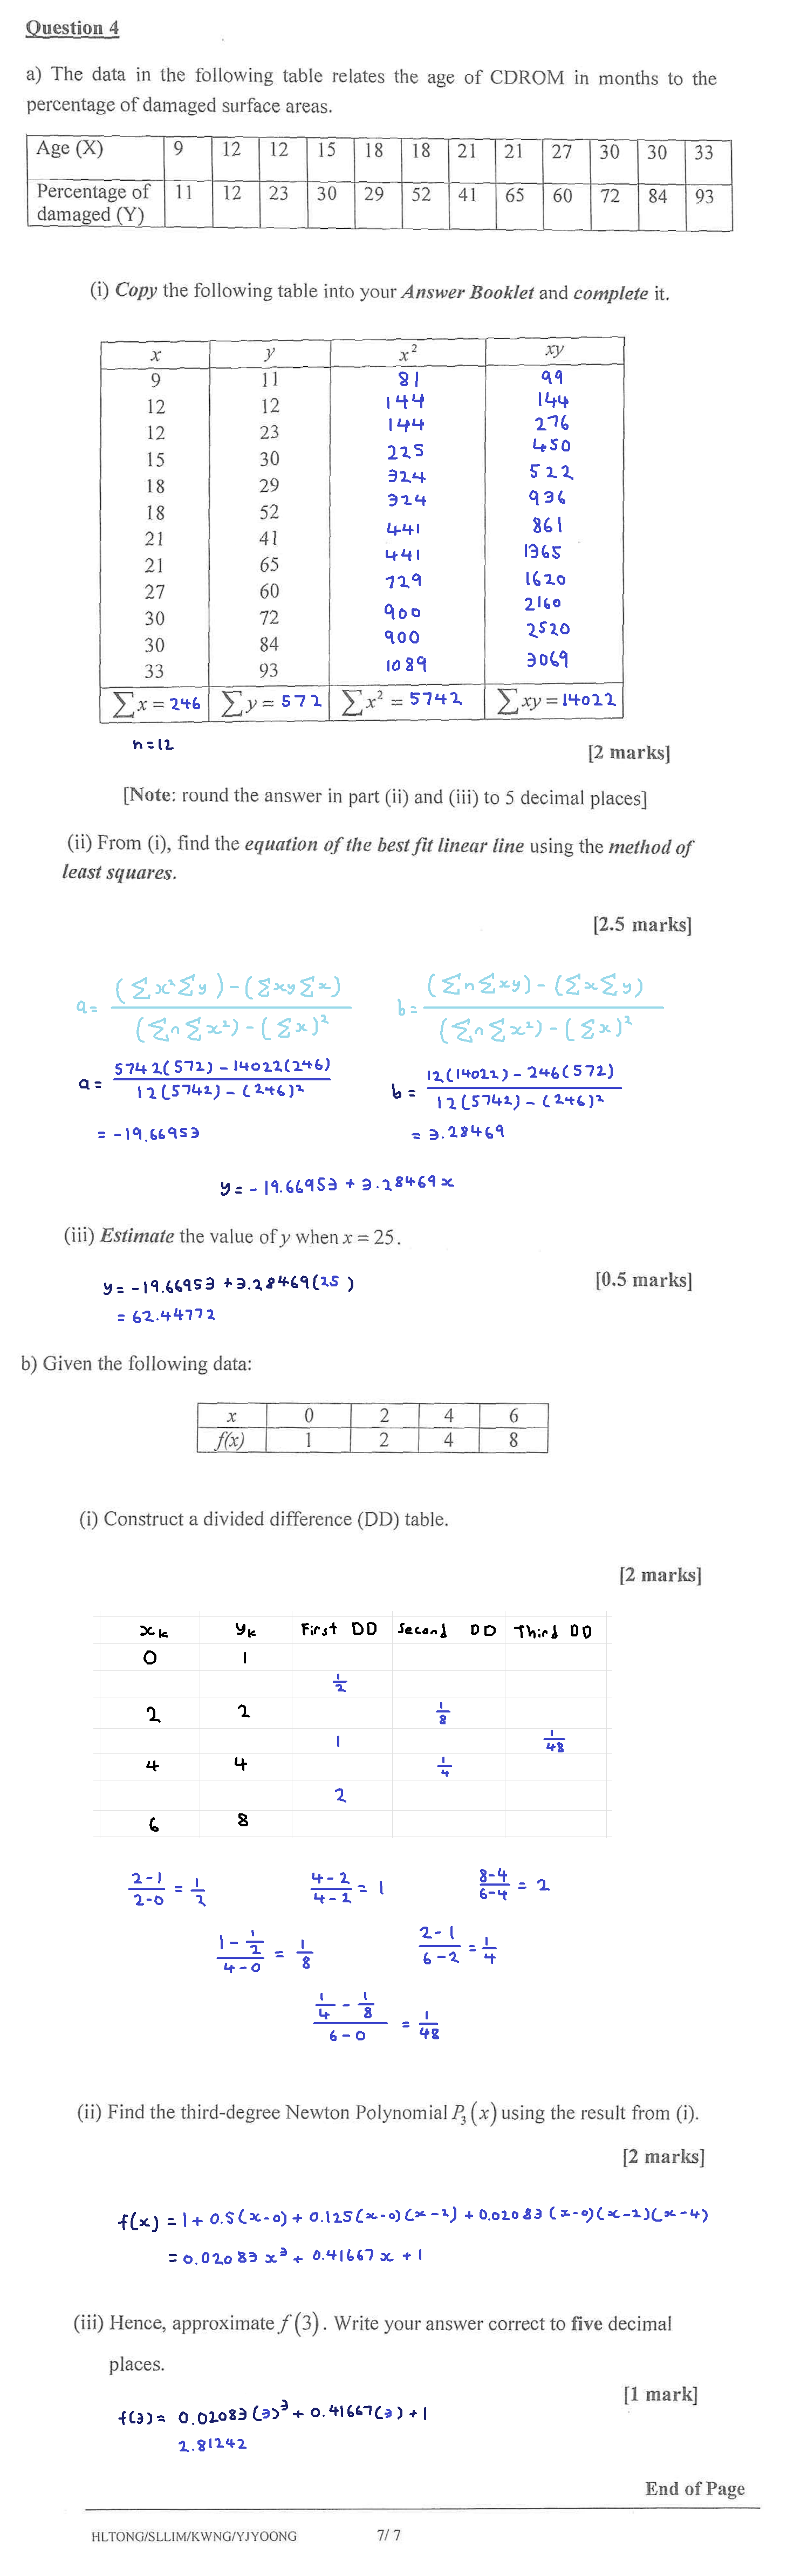 Question 4
a) The data in the following table relates the age of CDROM in months to the
percentage of damaged surface areas.
Age (X) 9 12 12 15 18 18 21 21 27 30 30 33
Percentage of damaged (Y) 11 12 23 30 29 52 41 65 60 72 84 93
(i) Copy the following table into your Answer Booklet and complete it.
x y x² xy
9 11 81 99
12 12 144 144
12 23 144 276
15 30 225 450
18 29 324 522
18 52 324 936
21 41 441 861
21 65 441 1365
27 60 729 1620
30 72 900 2160
30 84 900 2520
33 93 1089 3069
∑x = 246 ∑y = 572 ∑x² = 5742 ∑xy = 14022
n = 12
[2 marks]
[Note: round the answer in part (ii) and (iii) to 5 decimal places]
(ii) From (i), find the equation of the best fit linear line using the method of
least squares.
[2.5 marks]
a = ((∑x²∑y) - (∑xy∑x)) / ((∑n∑x²) - (∑x)²) b = ((∑n∑xy) - (∑x∑y)) / ((∑n∑x²) - (∑x)²)
a = (5742(572) - 14022(246)) / (12(5742) - (246)²) b = (12(14022) - 246(572)) / (12(5742) - (246)²)
= -19.66953 = 3.28469
y = -19.66953 + 3.28469x
(iii) Estimate the value of y when x = 25.
[0.5 marks]
y = -19.66953 + 3.28469(25)
= 62.44772
b) Given the following data:
x 0 2 4 6
f(x) 1 2 4 8
(i) Construct a divided difference (DD) table.
[2 marks]
xk yk First DD Second DD Third DD
0 1
1/2
2 2 1/8
1 1/48
4 4 1/4
2
6 8
(2-1)/(2-0) = 1/2 (4-2)/(4-2) = 1 (8-4)/(6-4) = 2
(1 - 1/2)/(4-0) = 1/8 (2-1)/(6-2) = 1/4
(1/4 - 1/8)/(6-0) = 1/48
(ii) Find the third-degree Newton Polynomial P₃(x) using the result from (i).
[2 marks]
f(x) = 1 + 0.5(x-0) + 0.125(x-0)(x-2) + 0.02083(x-0)(x-2)(x-4)
= 0.02083x³ + 0.41667x + 1
(iii) Hence, approximate f(3). Write your answer correct to five decimal
places.
[1 mark]
f(3) = 0.02083(3)³ + 0.41667(3) + 1
2.81242
End of Page
HLTONG/SLLIM/KWNG/YJYOONG 7/7